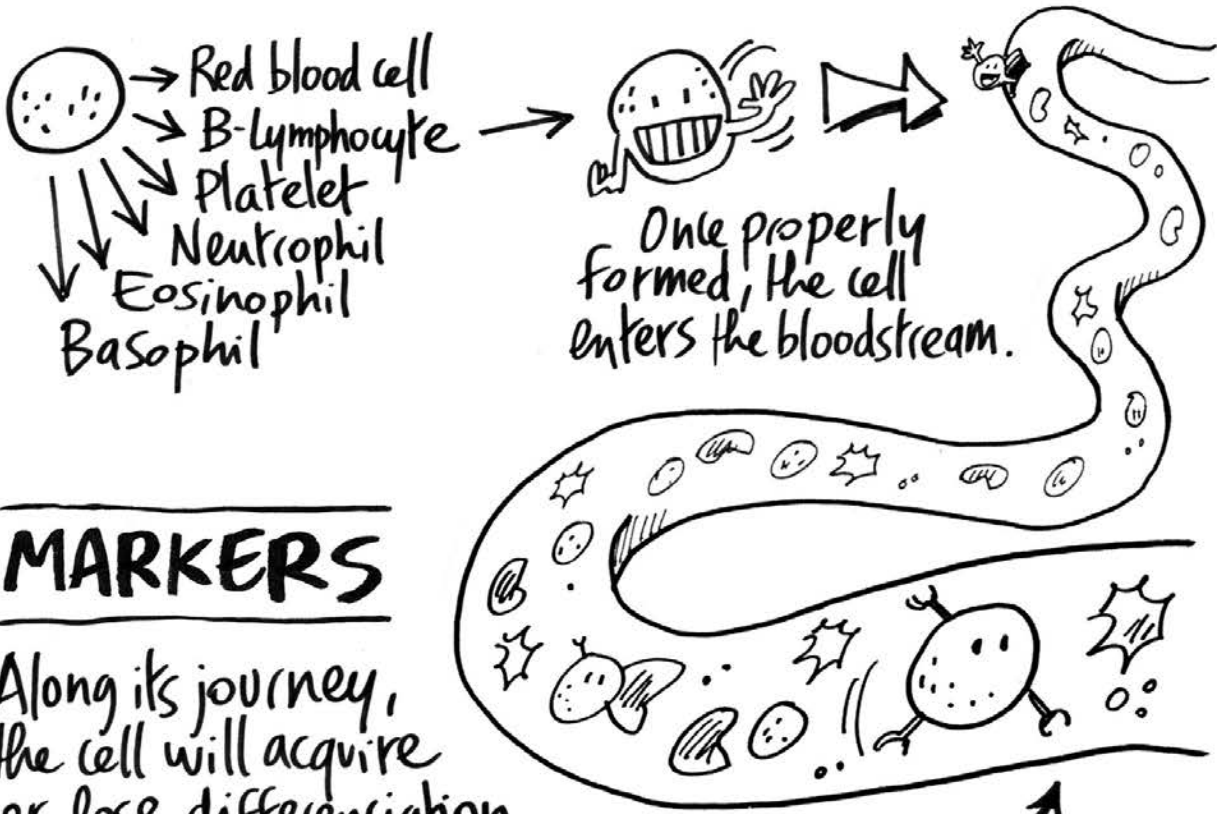 Red blood cell
B-Lymphocyte
Platelet
Neutrophil
Eosinophil
Basophil
Once properly
formed, the cell
enters the bloodstream.
MARKERS
Along its journey,
the cell will acquire
or lose differenciation